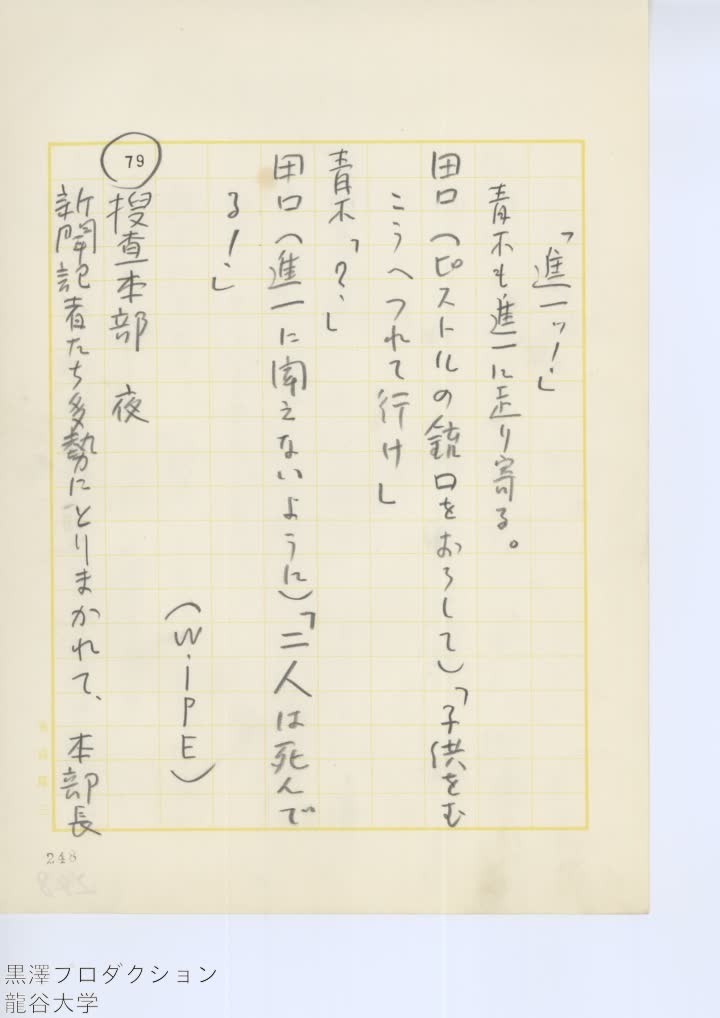 「進一ッ！」
青木も進一に走り寄る。
田口（ピストルの銃口をおろして）「子供をむ
こうへつれて行け」
青木「？」
田口（進一に聞えないように）「二人は死んで
る！」
（WiPE）
79
捜査本部　夜
新聞記者たち多勢にとりまかれて、本部長
248
黒澤プロダクション
龍谷大学